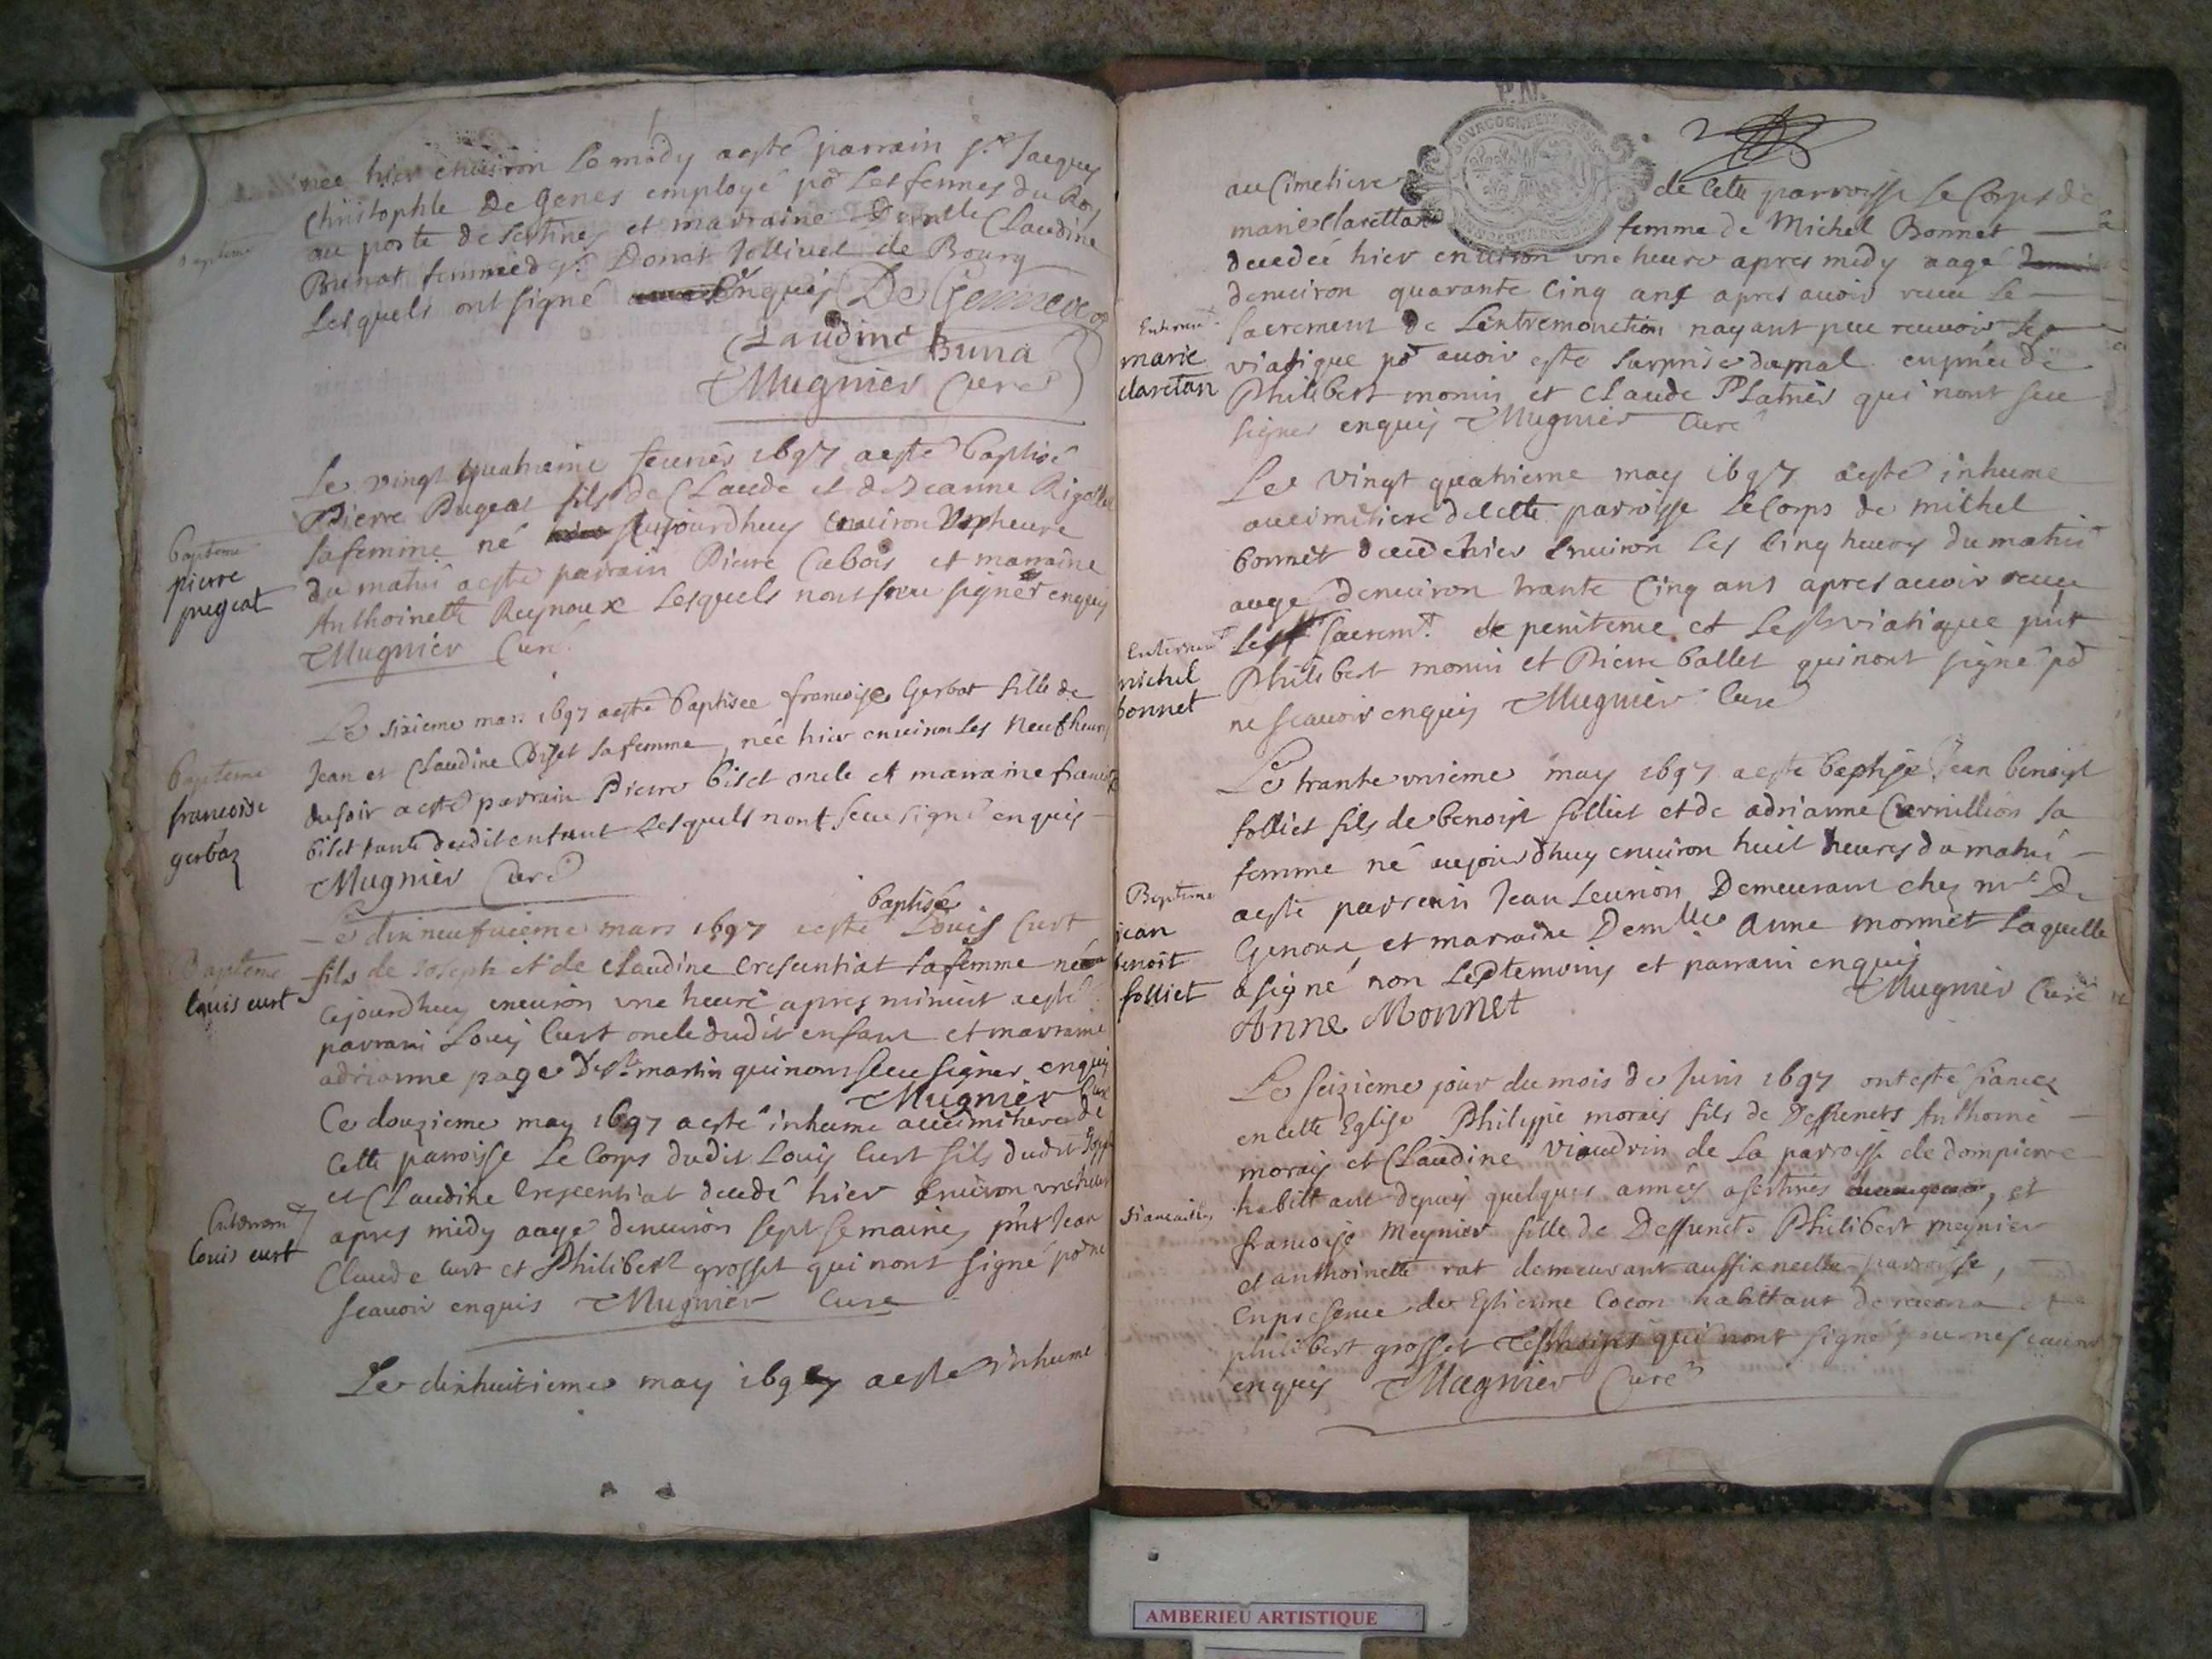 née hier environ le midy a esté parrain sr Jacques
Christophle de Genes employé pr les fermes du Roy
au poste de sertines et marraine Dmlle Claudine
Brunat femme de sr Donat Jollivet de Bourg
Lesquels ont signé enquis De Genneve
Claudine Buna
Mugnier Curé
Baptême
Le vingt quatrieme feurier 1697 a esté baptisé
Pierre Pugeat fils de Claude et de Jeanne
sa femme né aujourdhuy environ heure
du matin a esté parrain Pierre Cabois et marraine
Anthoinette Reynoux Lesquels nont sceu signer enquis
Mugnier Curé
bapteme
pierre
pugeat
Le sixieme mars 1697 a esté baptisee francoise Gerbat fille de
Jean et Claudine Biset sa femme, née hier environ les neuf heures
du soir a esté parrain Pierre biset oncle et marraine
biset tante dudit enfant Lesquels nont sceu signé enquis
Mugnier Curé
bapteme
francoise
gerbaz
baptisé
Le dixneufuieme mars 1697 a esté Louis Curt
fils de Joseph et de Claudine Cresentiat sa femme né
cejourdhuy environ une heure apres minuit a esté
parrain Louis Curt oncle dudit enfant et marraine
adrianne page de st martin qui nont sceu signer enquis
Mugnier Curé
Baptême
louis curt
Ce douzieme may 1697 a esté inhumé au cimitiere de
Cette parroisse Le Corps dudit Louis Curt fils dudit
et Claudine Crescentiat decedé hier environ une heure
apres midy aagé denuiron sept semaines, pnt Jean
Claude Curt et Philibert grosset qui nont signé pr ne
scauoir enquis Mugnier Curé
Enterremt
louis curt
Le dixhuitieme may 1697 a esté inhumé
P.M.
au Cimetiere de Cette parroisse Le Corps de
marie Clarettan femme de Michel Bonnet
decedée hier environ une heure apres midy aagé
denuiron quarante Cinq ans apres auoir receu Le
sacrement de Lextremonction nayant peu receuoir Le
viatique pr auoir esté surprise du mal en pnce de
Philibert monin et Claude Platnier qui nont sceu
signer enquis Mugnier Curé
Enterremt
marie
claretan
Le vingt quatrieme may 1697 a esté inhumé
au cimitiere de Cette parroisse Le Corps de michel
bonnet decedé hier environ Les Cinq heures du matin
aagé denuiron trante Cinq ans apres auoir receu
Les sacremt de penitence et Le st viatique pnt
Philibert monin et Pierre ballet qui nont signé pr
ne scauoir enquis Mugnier Curé
Enterremt
michel
bonnet
Le trante unieme may 1697 a esté baptisé Jean benoist
folliet fils de benoist folliet et de adrianne Cornillion sa
femme né aujourdhuy environ huit heures du matin
a esté parrain Jean Leurion Demeurant chez mr De
Genoux et marraine Demlle Anne monnet Laquelle
a signé non Les temoins et parrain enquis
Anne Monnet Mugnier Curé
Bapteme
jean
benoit
folliet
Le seizieme jour du mois de Juin 1697 ont esté fiancez
en cette Eglise Philippe morais fils de Deffuncts Anthoine
morais et Claudine Viaudrin de La parroisse de dompierre
habittant depuis quelques années a sertines, et
francoise Meynier fille de Deffuncts Philibert meynier
et anthoinette rat demeurant aussi en cette parroisse,
En presence de Estienne Cocon habittant de et
philibert grosset Tesmoins qui nont signé pour ne scauoir
enquis Mugnier Curé
fiancailles
AMBERIEU ARTISTIQUE